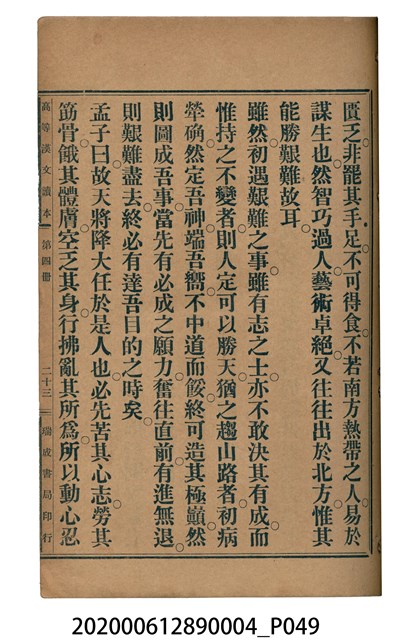 匱乏。非罷其手足。不可得食。不若南方熱帶之人。易於
謀生也。然智巧過人。藝術卓絕。又往往出於北方。惟其
能勝艱難故耳。
雖然。初遇艱難之事。雖有志之士。亦不敢決其有成。而
惟持之不變者。則人定可以勝天。猶之趨山路者。初病
犖确。然定吾神。端吾嚮。不中道而餒。終可造其極巔。然
則圖成吾事。當先有必成之願力。奮往直前。有進無退。
則艱難盡去。終必有達吾目的之時矣。
孟子曰。故天將降大任於是人也。必先苦其心志。勞其
筋骨。餓其體膚。空乏其身。行拂亂其所爲。所以動心忍
高等漢文讀本 第四册 二十三 瑞成書局印行
202000612890004_P049